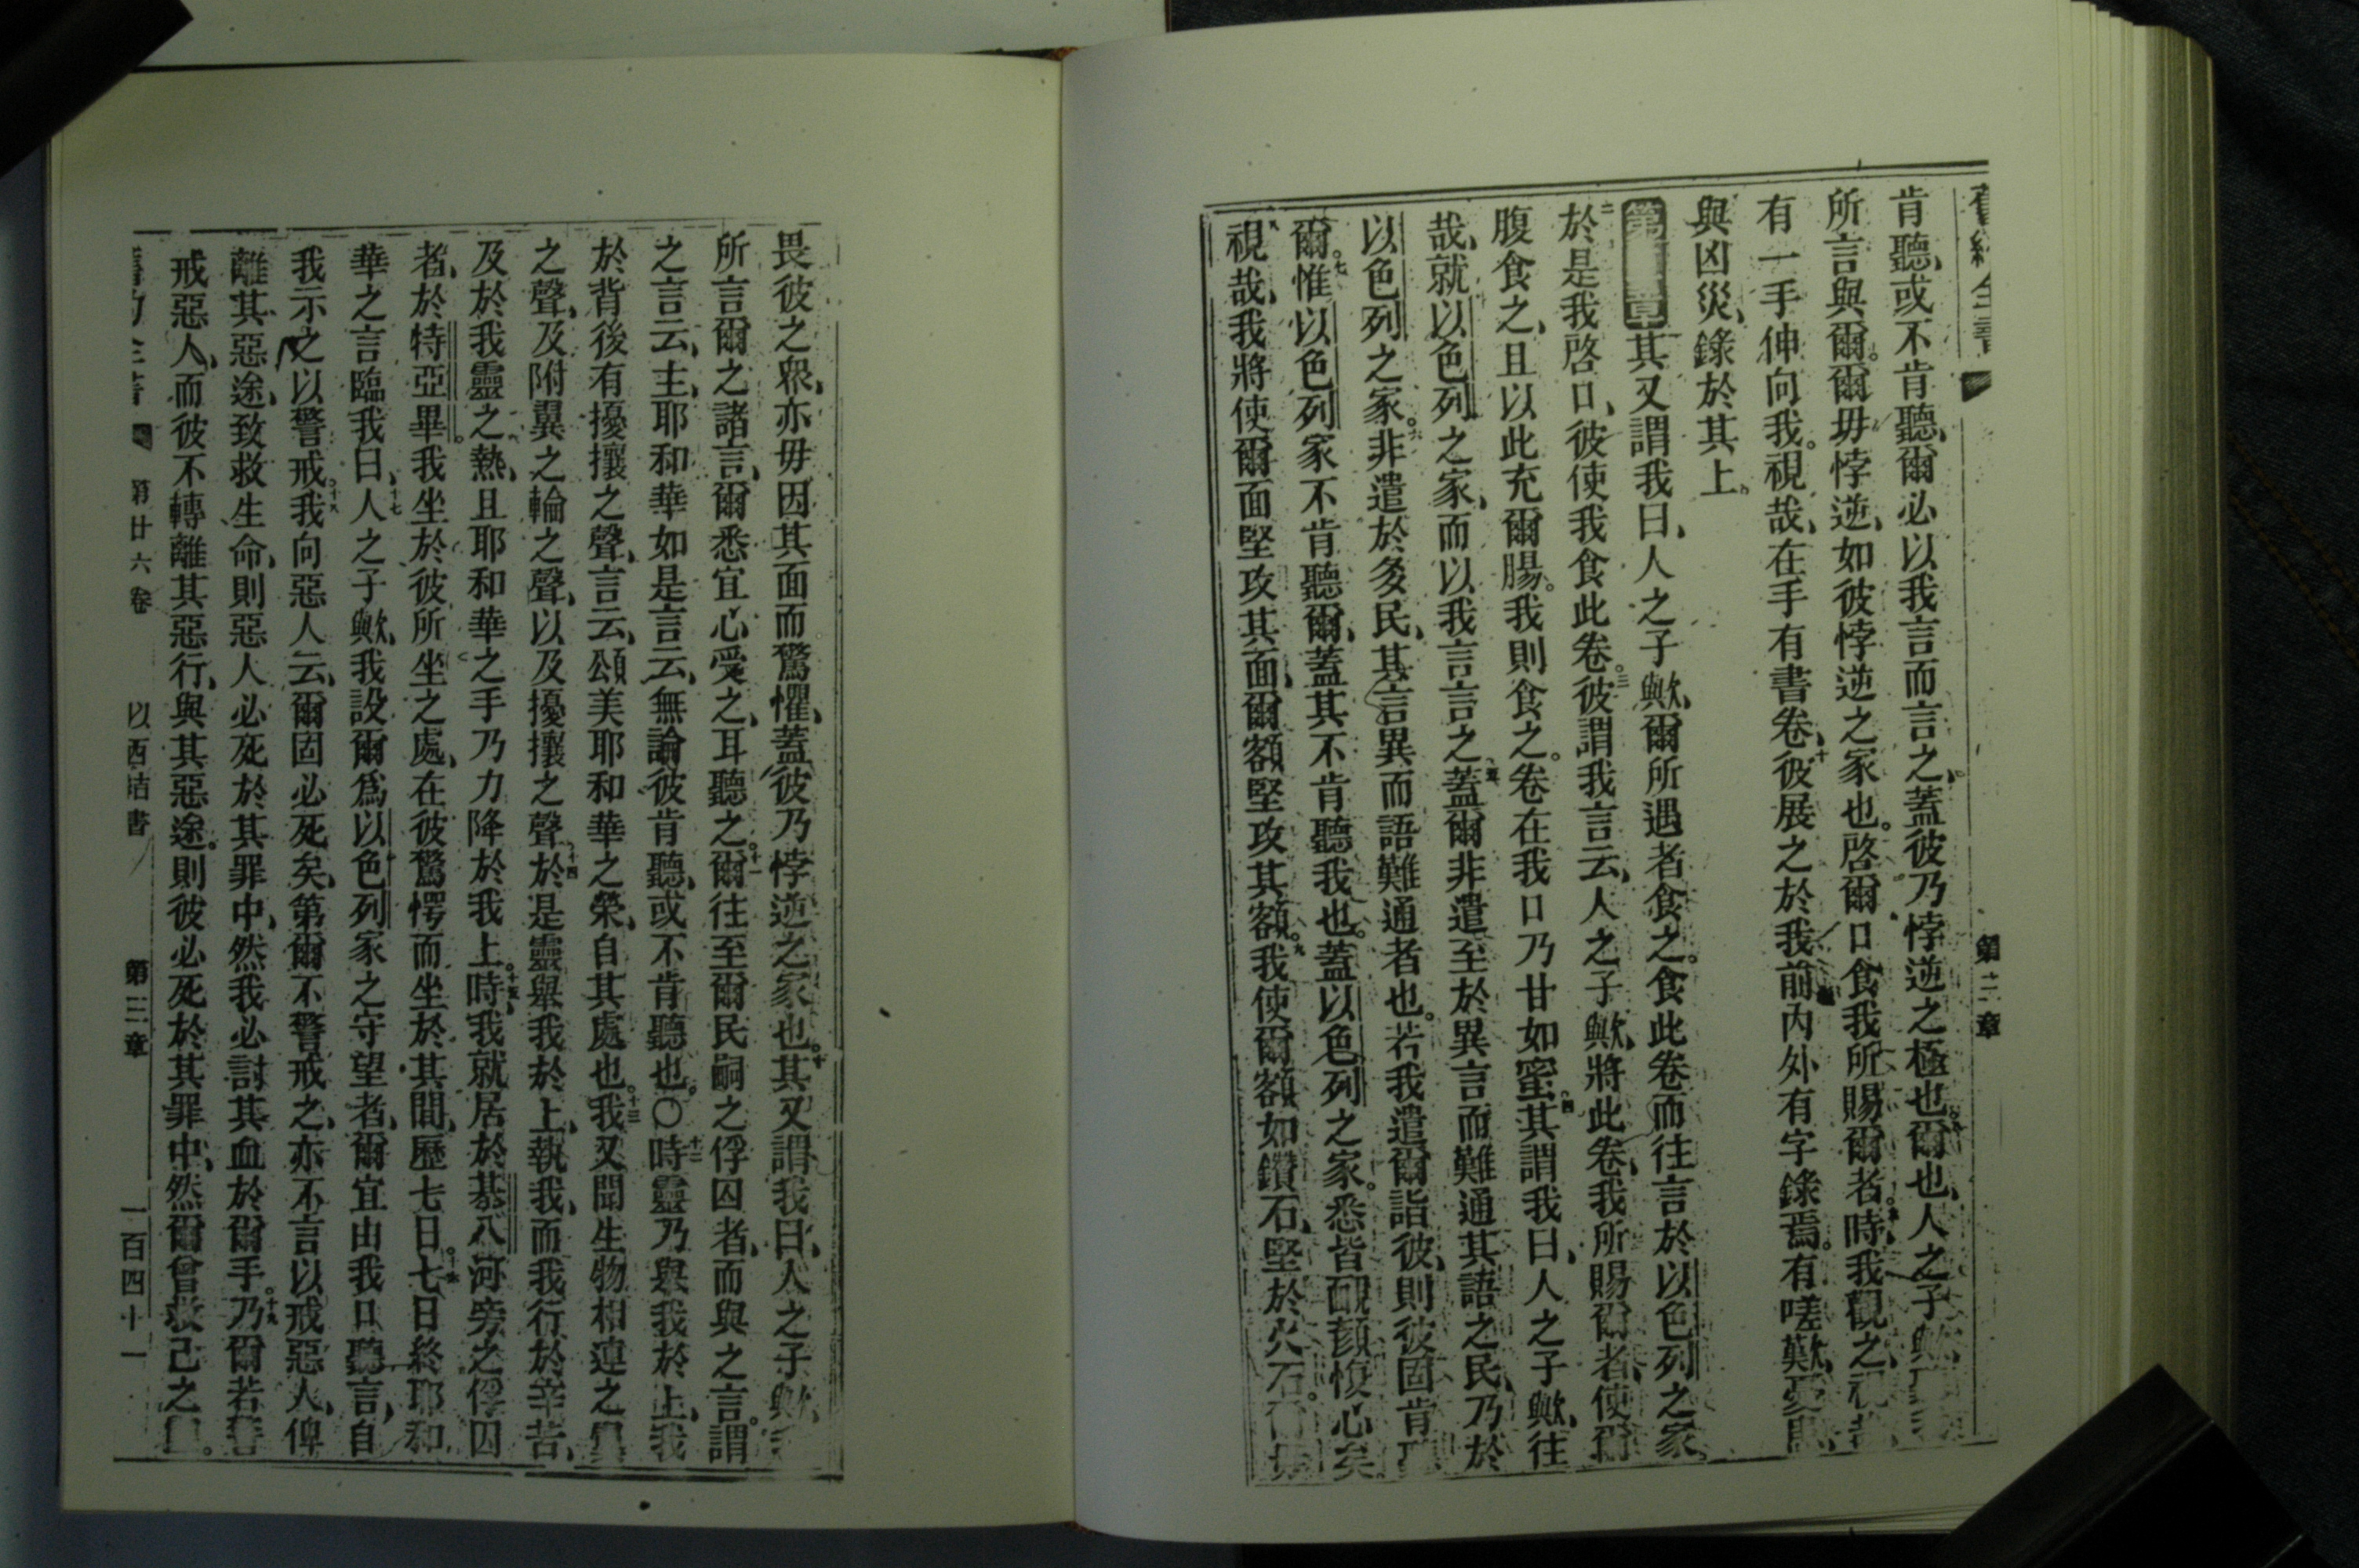 舊約全書 第二章
肯聽、或不肯聽、爾必以我言而言之、蓋彼乃悖逆之極也。爾也、人之子歟、
所言與爾。爾毋悖逆、如彼悖逆之家也。啓爾口食我所賜爾者。時、我觀之、視哉、
有一手伸向我。視哉、在手有書卷、十彼展之於我前、內外有字錄焉。有嗟歎、憂
與凶災、錄於其上。
第 章其又謂我曰、人之子歟、爾所遇者食之。食此卷而往言於以色列之家、
二於是我啓口、彼使我食此卷。三彼謂我言云、人之子歟、將此卷、我所賜爾者、使爾
腹食之、且以此充爾腸。我則食之。卷在我口乃甘如蜜。四其謂我曰、人之子歟、往
哉、就以色列之家、而以我言言之。五蓋爾非遣至於異言而難通其語之民、乃於
以色列之家。六非遣於多民、其言異而語難通者也。若我遣爾詣彼、則彼固肯
爾。七惟以色列家不肯聽爾、蓋其不肯聽我也。蓋以色列之家。悉皆靦顏愎心矣
視哉、我將使爾面堅攻其面、爾額堅攻其額。九我使爾額如鑽石、堅於火石。
畏彼之衆、亦毋因其面而驚懼、蓋彼乃悖逆之家也。十其又謂我曰、人之子歟、
所言爾之諸言、爾悉宜心受之、耳聽之。十一爾往至爾民嗣之俘囚者、而與之言。謂
之言云、主、耶和華如是言云、無論彼肯聽、或不肯聽也。〇十二時靈乃與我於上、我
於背後有擾攘之聲、言云、頌美耶和華之榮、自其處也。十三我又聞生物相連之
之聲、及附翼之輪之聲、以及擾攘之聲。十四於是靈舉我於上、執我、而我行於辛苦、
及於我靈之熱、且耶和華之手乃力降於我上。十五時、我就居於基八河旁之俘囚
者、於特亞畢。我坐於彼所坐之處、在彼驚愕而坐於其間、歷七日。十六七日終耶和
華之言臨我曰、十七人之子歟、我設爾爲以色列家之守望者、爾宜由我口聽言、自
我示之以警戒。十八我向惡人云、爾固必死矣、第爾不警戒之、亦不言以戒惡人、俾
離其惡途、致救生命、則惡人必死於其罪中、然我必討其血於爾手。十九乃爾若警
戒惡人、而彼不轉離其惡行、與其惡途。則彼必死於其罪中、然爾曾救己之
舊約全書 第廿六卷 以西結書 第三章 一百四十一